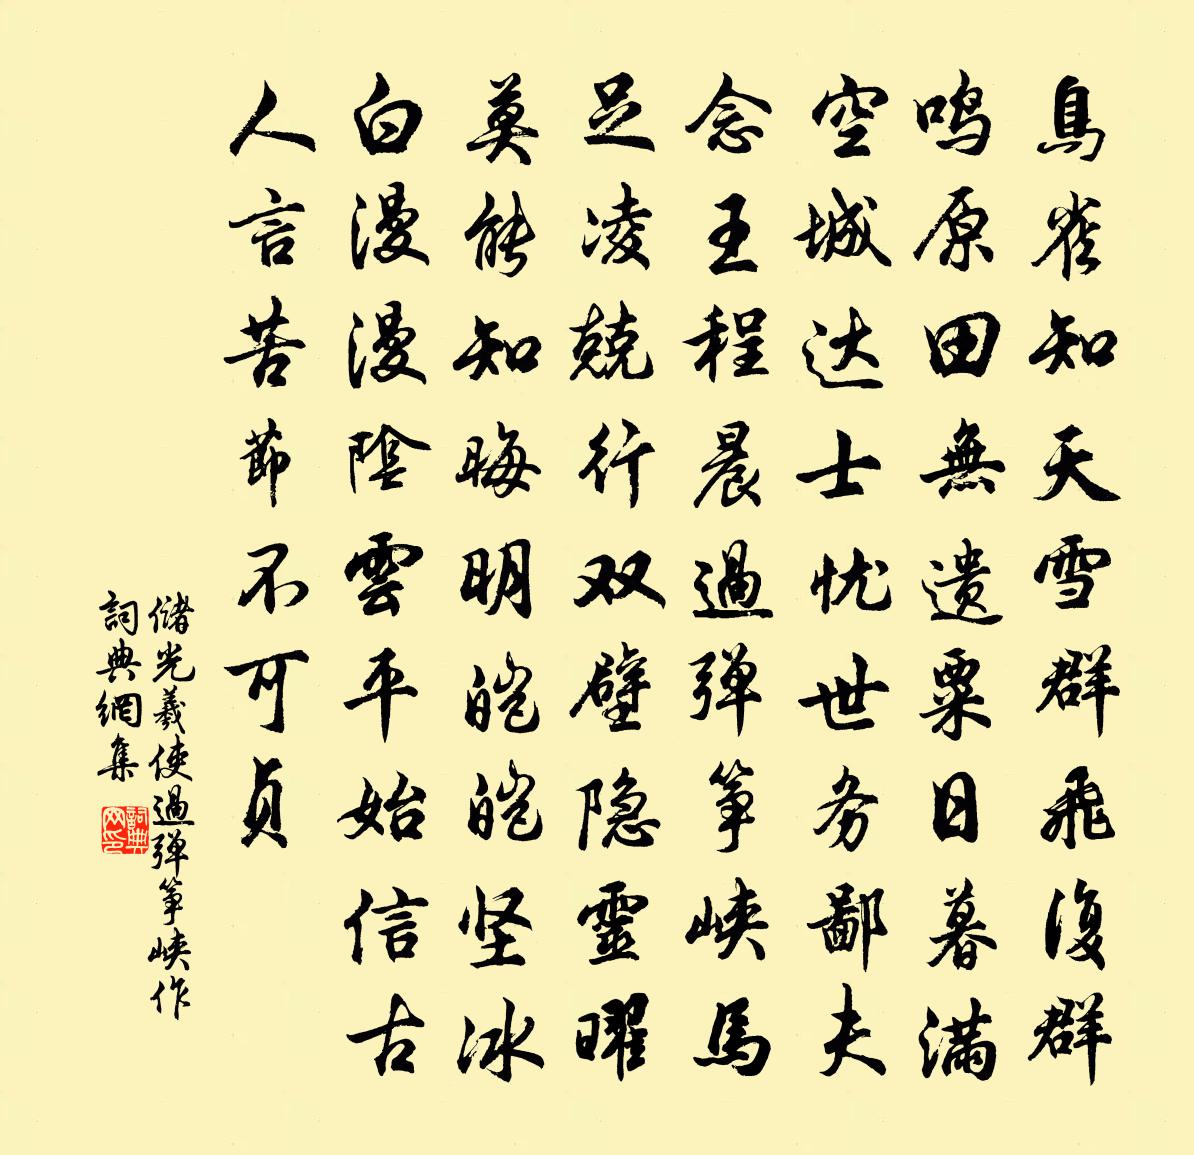 鳥雀知天雪群飛復群
鸣原田無遗粟日暮满
空城达士忧世务鄙夫
念王程晨過弹筝峡馬
足凌兢行双壁隐靈曜
莫能知晦明皑皑坚冰
白漫漫陰雲平始信古
人言苦節不可貞
儲光羲使過弹筝峡作
詞典網集